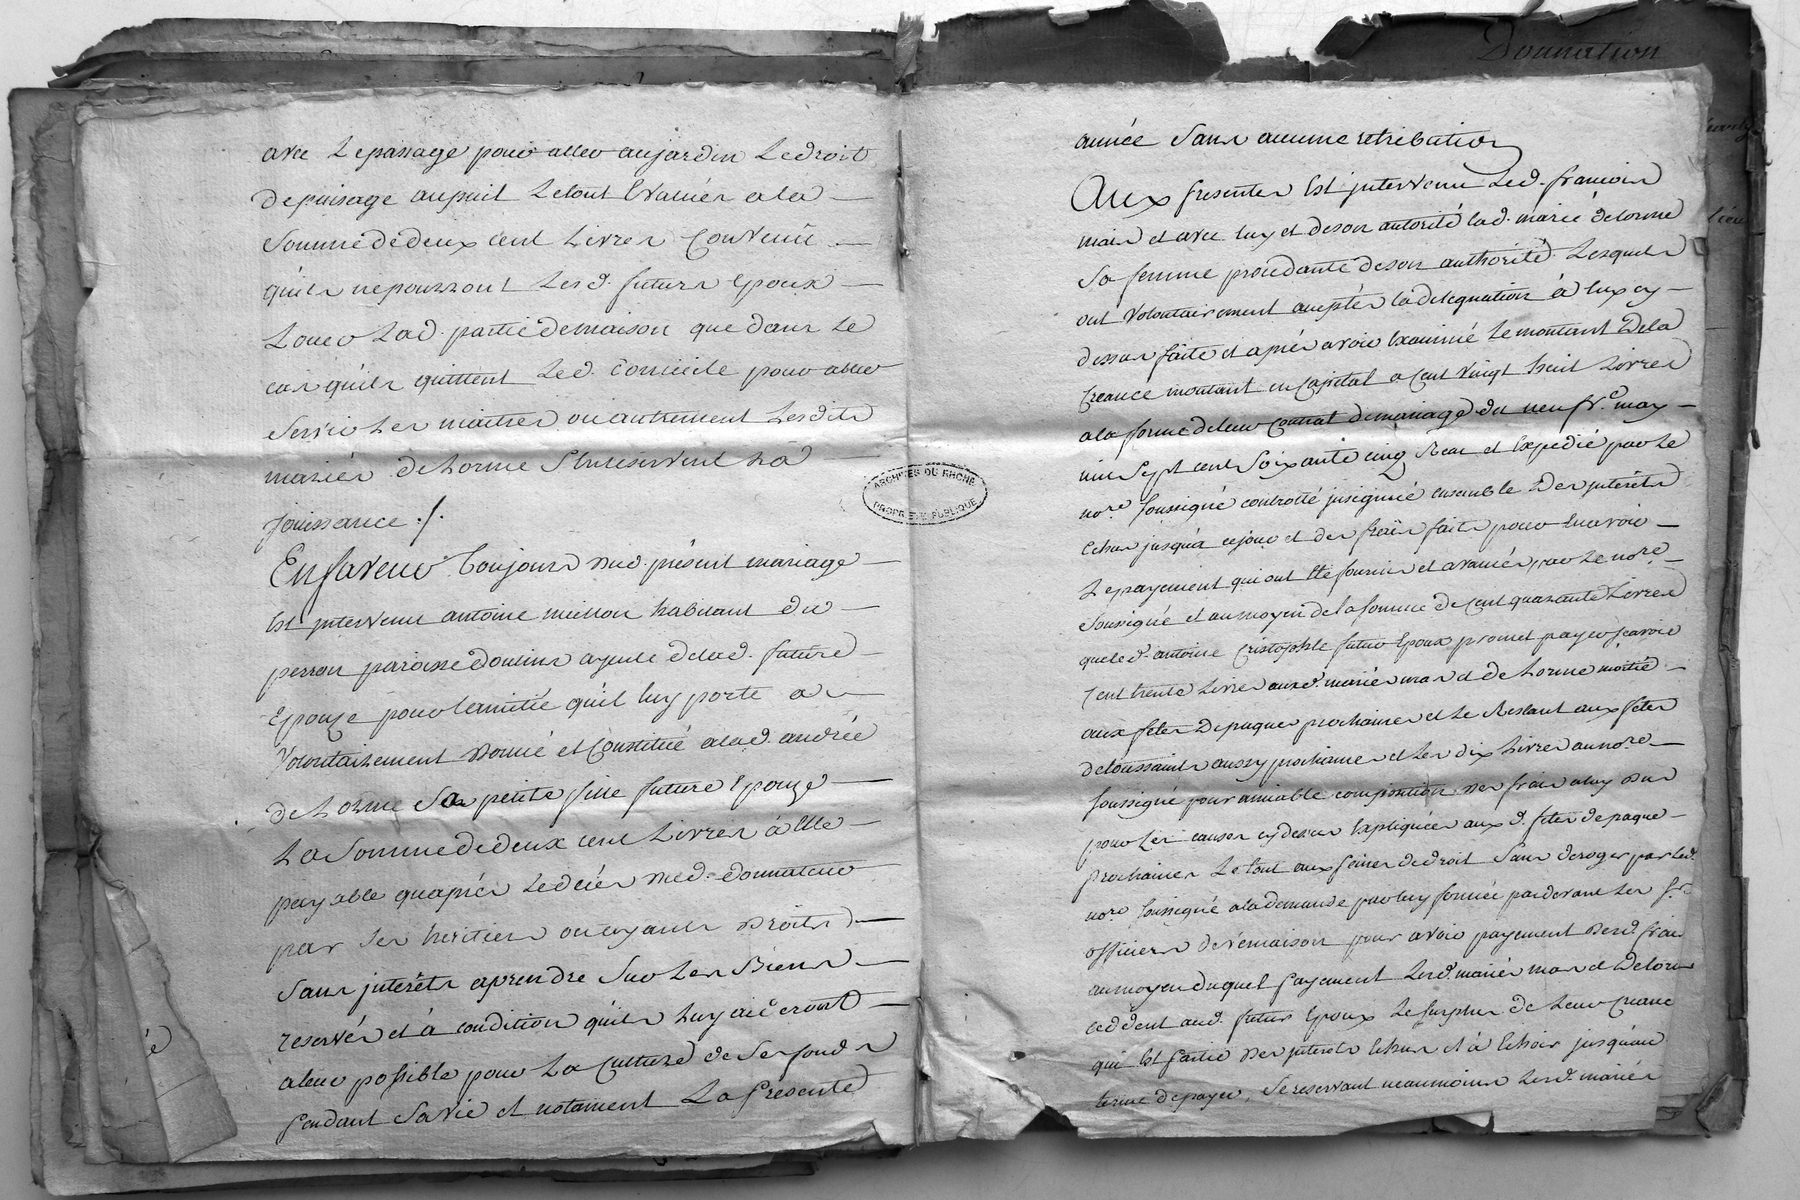 avec Le passage pour aller au jardin Le droit
de puisage au puit Le tout Evalués a la
Somme de deux cent Livres Convenû
qu'ils ne pourront Lesd. futurs Epoux
Louer Lad. partie de maison que dans Le
cas qu'ils quittent Led. Domicile pour aller
Servir Les maitres ou autrement Lesdits
mariés de Lorme S'en reservent La
Jouissance ./.
En faveur Toujours dud. présent mariage
Est intervenu antoine meillon habitant du
perron paroisse doulins ayeule de lad. future
Epouze pour L'amitié qu'il luy porte a
Volontairement donné et Constitué a lad. andrée
de Lorme Sa petite fille future Epouze
La Somme de deux cent Livres à Elle
payable qu'après Le décès dud. donnateur
par Ses heritiers ou ayants droits
Sans intérêts a prendre Sur Les Biens
reservés et à condition qu'ils Luy aideront
a leur possible pour La Culture de Ses fonds
pendant Sa vie et notament La présente
Donnation
année Sans aucune retribution
Aux presentes Est intervenu Led. françois
mard et avec luy et de son autorité lad. marie delorme
Sa femme procedante de son authorité Lesquels
ont Volontairement acceptés la delegation à Eux cy
dessus faite et après avoir Examiné Le montant de la
Creance montant en Capital a Cent Vingt huit Livres
a la forme de leur Contrat de mariage du neuf may
mil Sept cent Soixante cinq Reçu et Expedié par Le
nore. soussigné controllé insignué ensemble des intérêts
échus jusqu'à ce jour et des frais faits pour En avoir
Le payement qui ont Eté fournis et avancés par Le nore.
Soussigné et au moyen de la somme de Cent quarante Livres
que led. antoine Cristophle futur Epoux promet payer scavoir
Cent trente Livres auxd. mariés mard et de Lorme moitié
aux fetes De paques prochaines et Le Restant aux fetes
de toussaints aussy prochaines et Les dix Livres au nore.
soussigné pour amiable composition des frais a luy dus
pour Les causes cy dessus Expliquées aux d. fetes de paque
prochaines Le tout aux peines de droit Sans deroger par Led.
nore. soussigné a la demande par luy formée par devant Les srs.
officiers de Vernaison pour avoir payement desd. frais
au moyen duquel payement Lesd. mariés mard et Delorme
cedent aud. futur Epoux Le surplus de Leur Creance
qui Est partie des interets Echus et à Echoir jusqu'au
terme de payer, Se reservant neanmoins Lesd. mariés
ARCHIVES DU RHONE
PROPRIÉTÉ PUBLIQUE